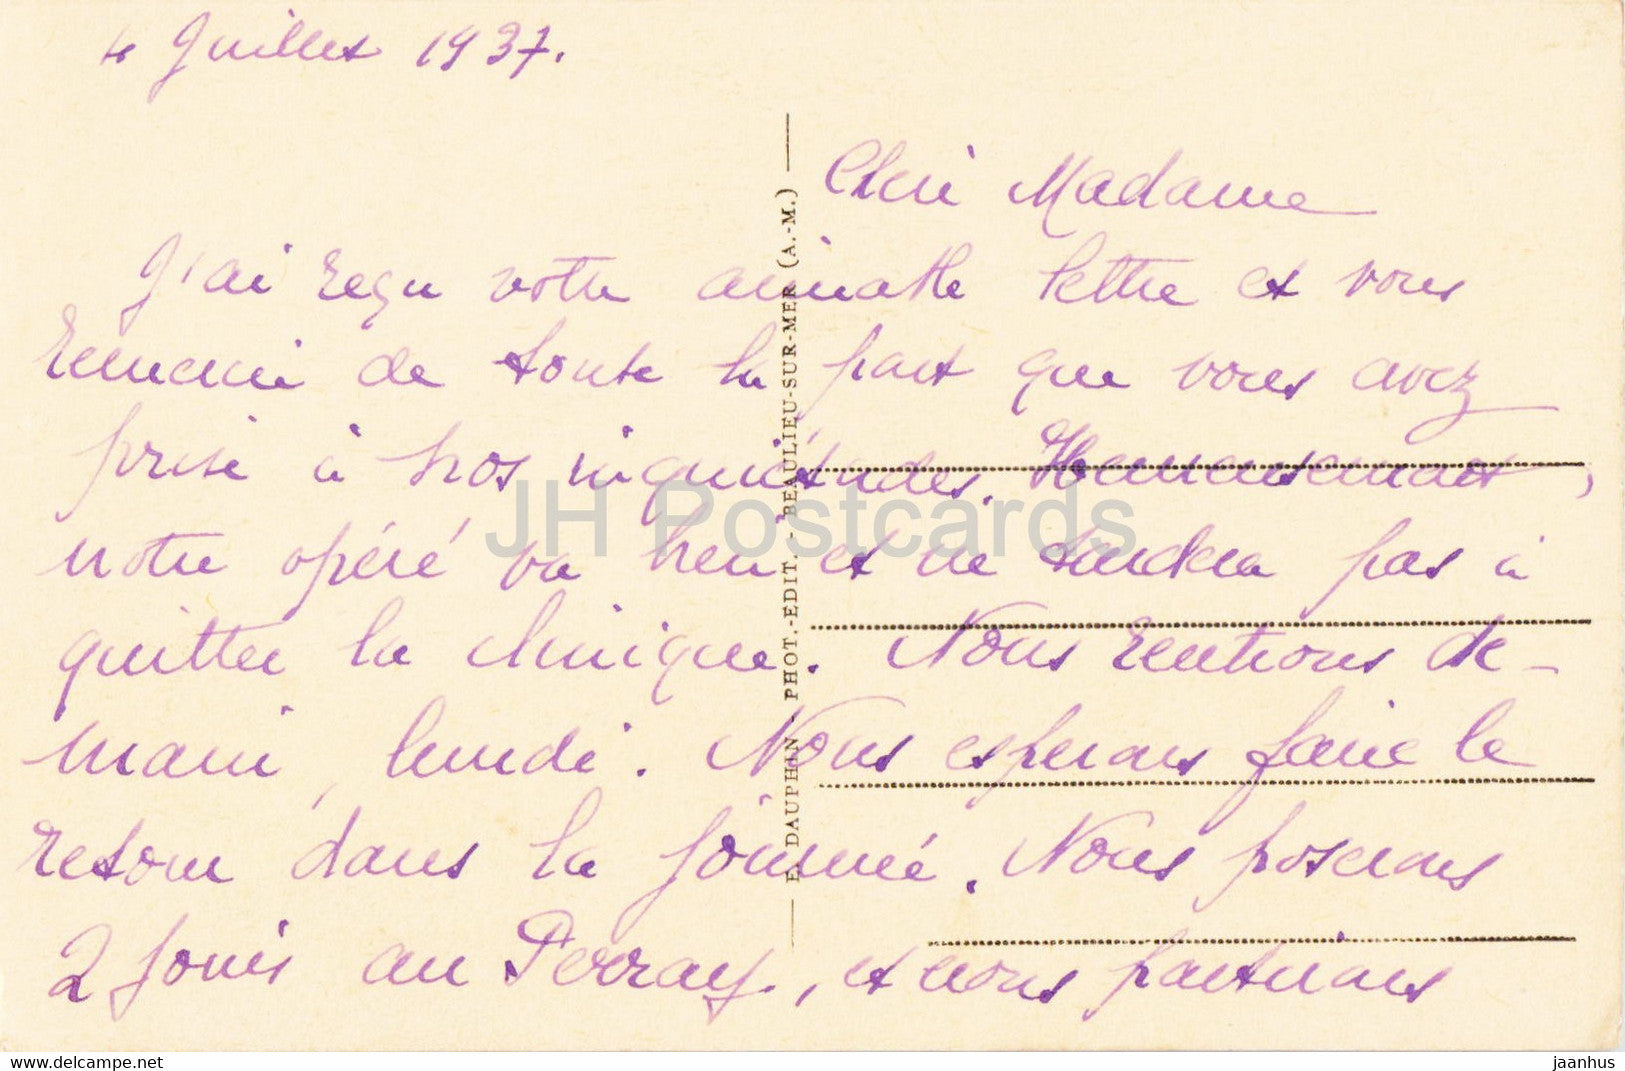 4 Juillet 1937.
Chère Madame
J'ai reçu votre aimable lettre et vous
remercie de toute la part que vous avez
prise à nos inquiétudes. Heureusement,
notre opéré va bien et ne tardera pas à
quitter la clinique. Nous rentrons de-
main, lundi. Nous espérons faire le
retour dans la journée. Nous poserons
2 jours au Perray, et nous partirons
E. DAUPHIN, PHOT.-EDIT. - BEAULIEU-SUR-MER (A.-M.)
JH Postcards
https://www.delcampe.net
jaanhus